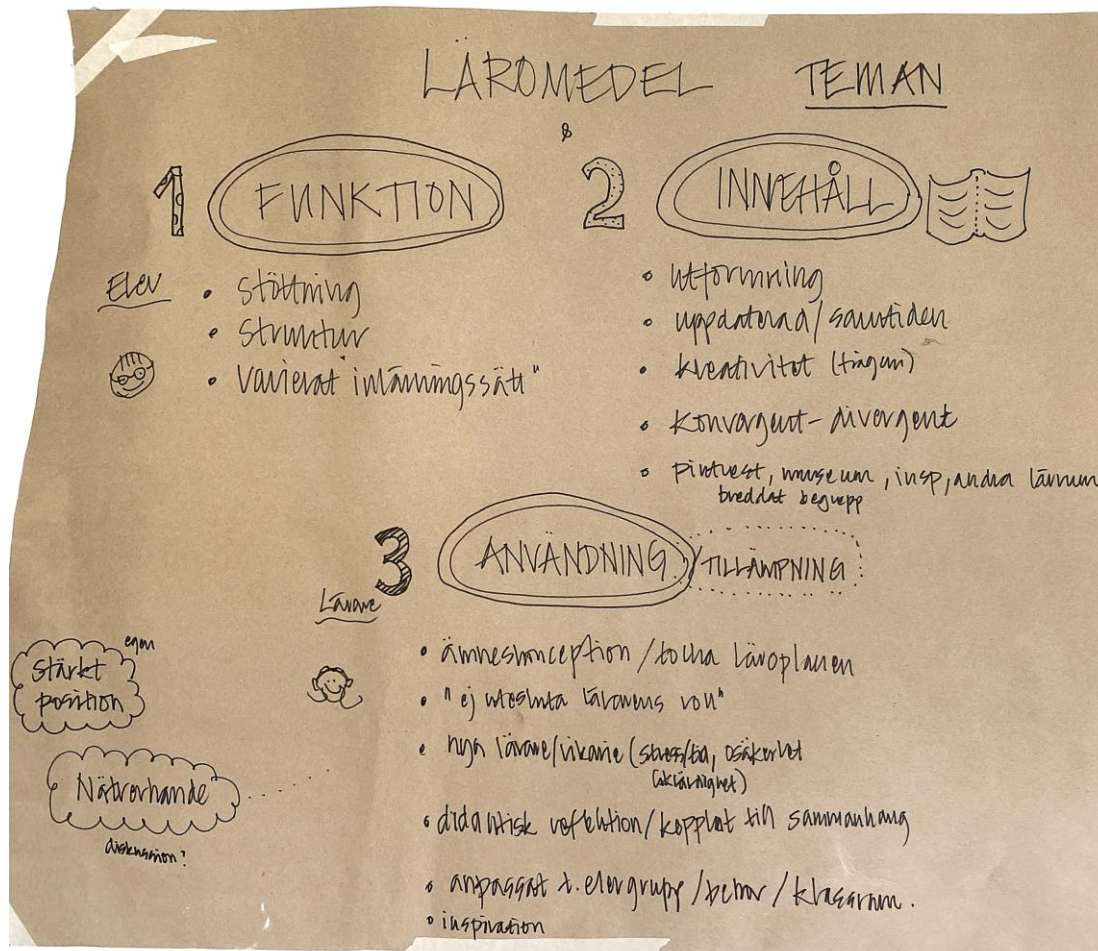 LÄROMEDEL TEMAN
&
1 FUNKTION
Elev
• stöttning
• struktur
• varierat inlärningssätt"
2 INNEHÅLL
• utformning
• uppdaterad/samtiden
• kreativitet (frågan)
• konvergent-divergent
• pintrest, museum, insp, andra lärrum
breddat begrepp
3 ANVÄNDNING/TILLÄMPNING
Lärare
• ämneskonception/tolka läroplanen
• "ej utesluta lärarens roll"
• nya lärare/vikarie (stress/tid, osäkerhet
• didaktisk reflektion/kopplat till sammanhang
• anpassat t. elevgrupp/behov/klassrum.
• inspiration
egen
stärkt
position
Nätverkande
diskussion?